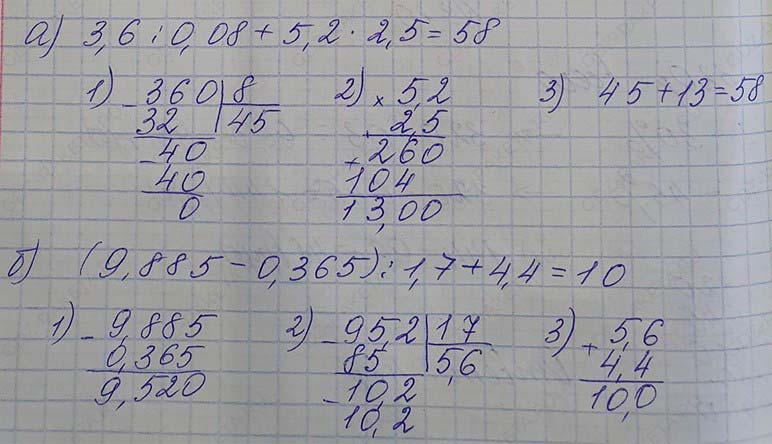 а) 3,6 : 0,08 + 5,2 · 2,5 = 58
1) - 360 | 8 2) × 5,2 3) 45 + 13 = 58
32 | 45 2,5
- 40 + 260
40 104
0 13,00
б) (9,885 - 0,365) : 1,7 + 4,4 = 10
1) - 9,885 2) - 95,2 | 17 3) + 5,6
0,365 85 | 5,6 4,4
9,520 - 10,2 10,0
10,2